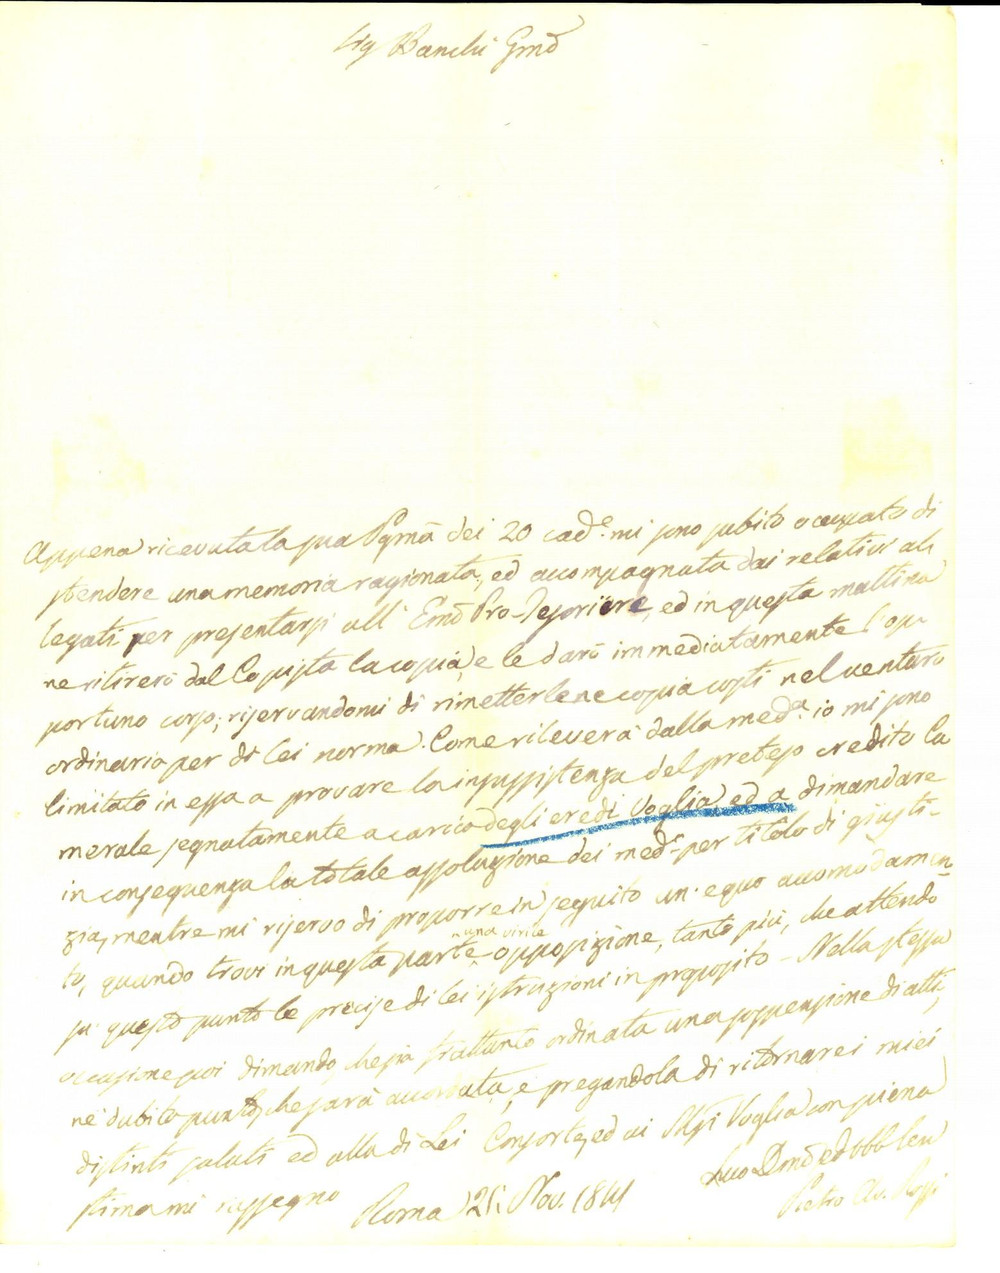 Sig Banchi Gmō
Appena ricevuta la sua Pgmā dei 20 cadᵉ. mi sono subito occupato di
stendere una memoria ragionata, ed accompagnata dai relativi al-
legati per presentarsi all' Emō Pro-Tesoriere, ed in questa mattina
ne ritirerò dal Copista la copia, e le darò immediatamente l'op-
portuno corso; riservandomi di rimetterlene copia costì nel venturo
ordinario per di lei norma. Come rileverà dalla medᵃ. io mi sono
limitato in essa a provare la insussistenza del preteso credito ca
merale segnatamente a carico degli eredi Voglia, ed a dimandare
in conseguenza la totale assoluzione dei medⁱ. per titolo di giusti-
zia, mentre mi riservo di proporre in seguito un' equo accomodamen
to, quando trovi in questa parte una virile opposizione, tanto più, che attendo
su questo punto le precise di lei istruzioni in proposito - Nella stessa
occasione poi dimando, che sia frattanto ordinata una sospensione di atti,
nè dubito punto, che sarà accordata, e pregandola di ritornare i miei
distinti saluti ed alla di Lei Consorte, ed ai SSgi Voglia con piena
stima mi rassegno
Roma 25. Nov. 1841
Suo Dmō ed obbl Seu
Pietro Av. Rossi